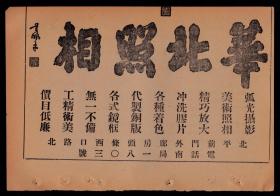 華北照相
弧光攝影
美術照相
精巧放大
冲洗膠片
各種着色
代製銅版
各式鏡框
無一不備
工精術美
價目低廉
北平前門外廊房頭條西口路北
電話南局一八〇三號